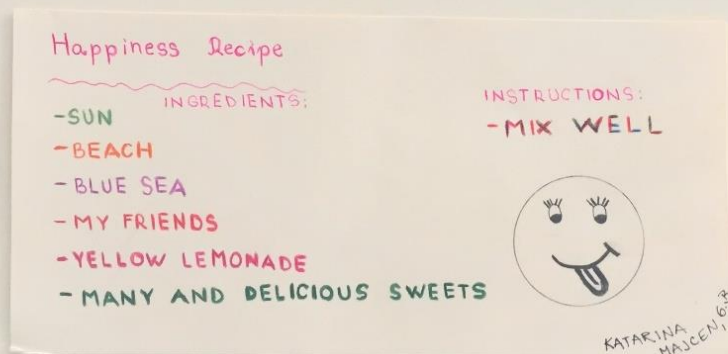 Happiness Recipe
INGREDIENTS:
-SUN
-BEACH
-BLUE SEA
-MY FRIENDS
-YELLOW LEMONADE
-MANY AND DELICIOUS SWEETS
INSTRUCTIONS:
-MIX WELL
KATARINA
MAJCEN, 6.B